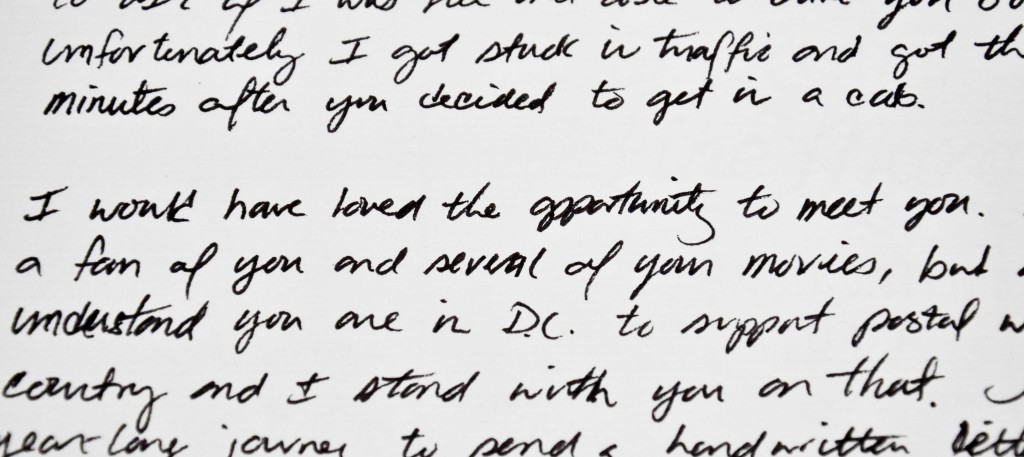 to ask if I was
unfortunately I got stuck in traffic and got
minutes after you decided to get in a cab.
I would have loved the opportunity to meet you.
a fan of you and several of your movies, but
understand you are in D.C. to support postal
country and I stand with you on that.
year-long journey to send a handwritten